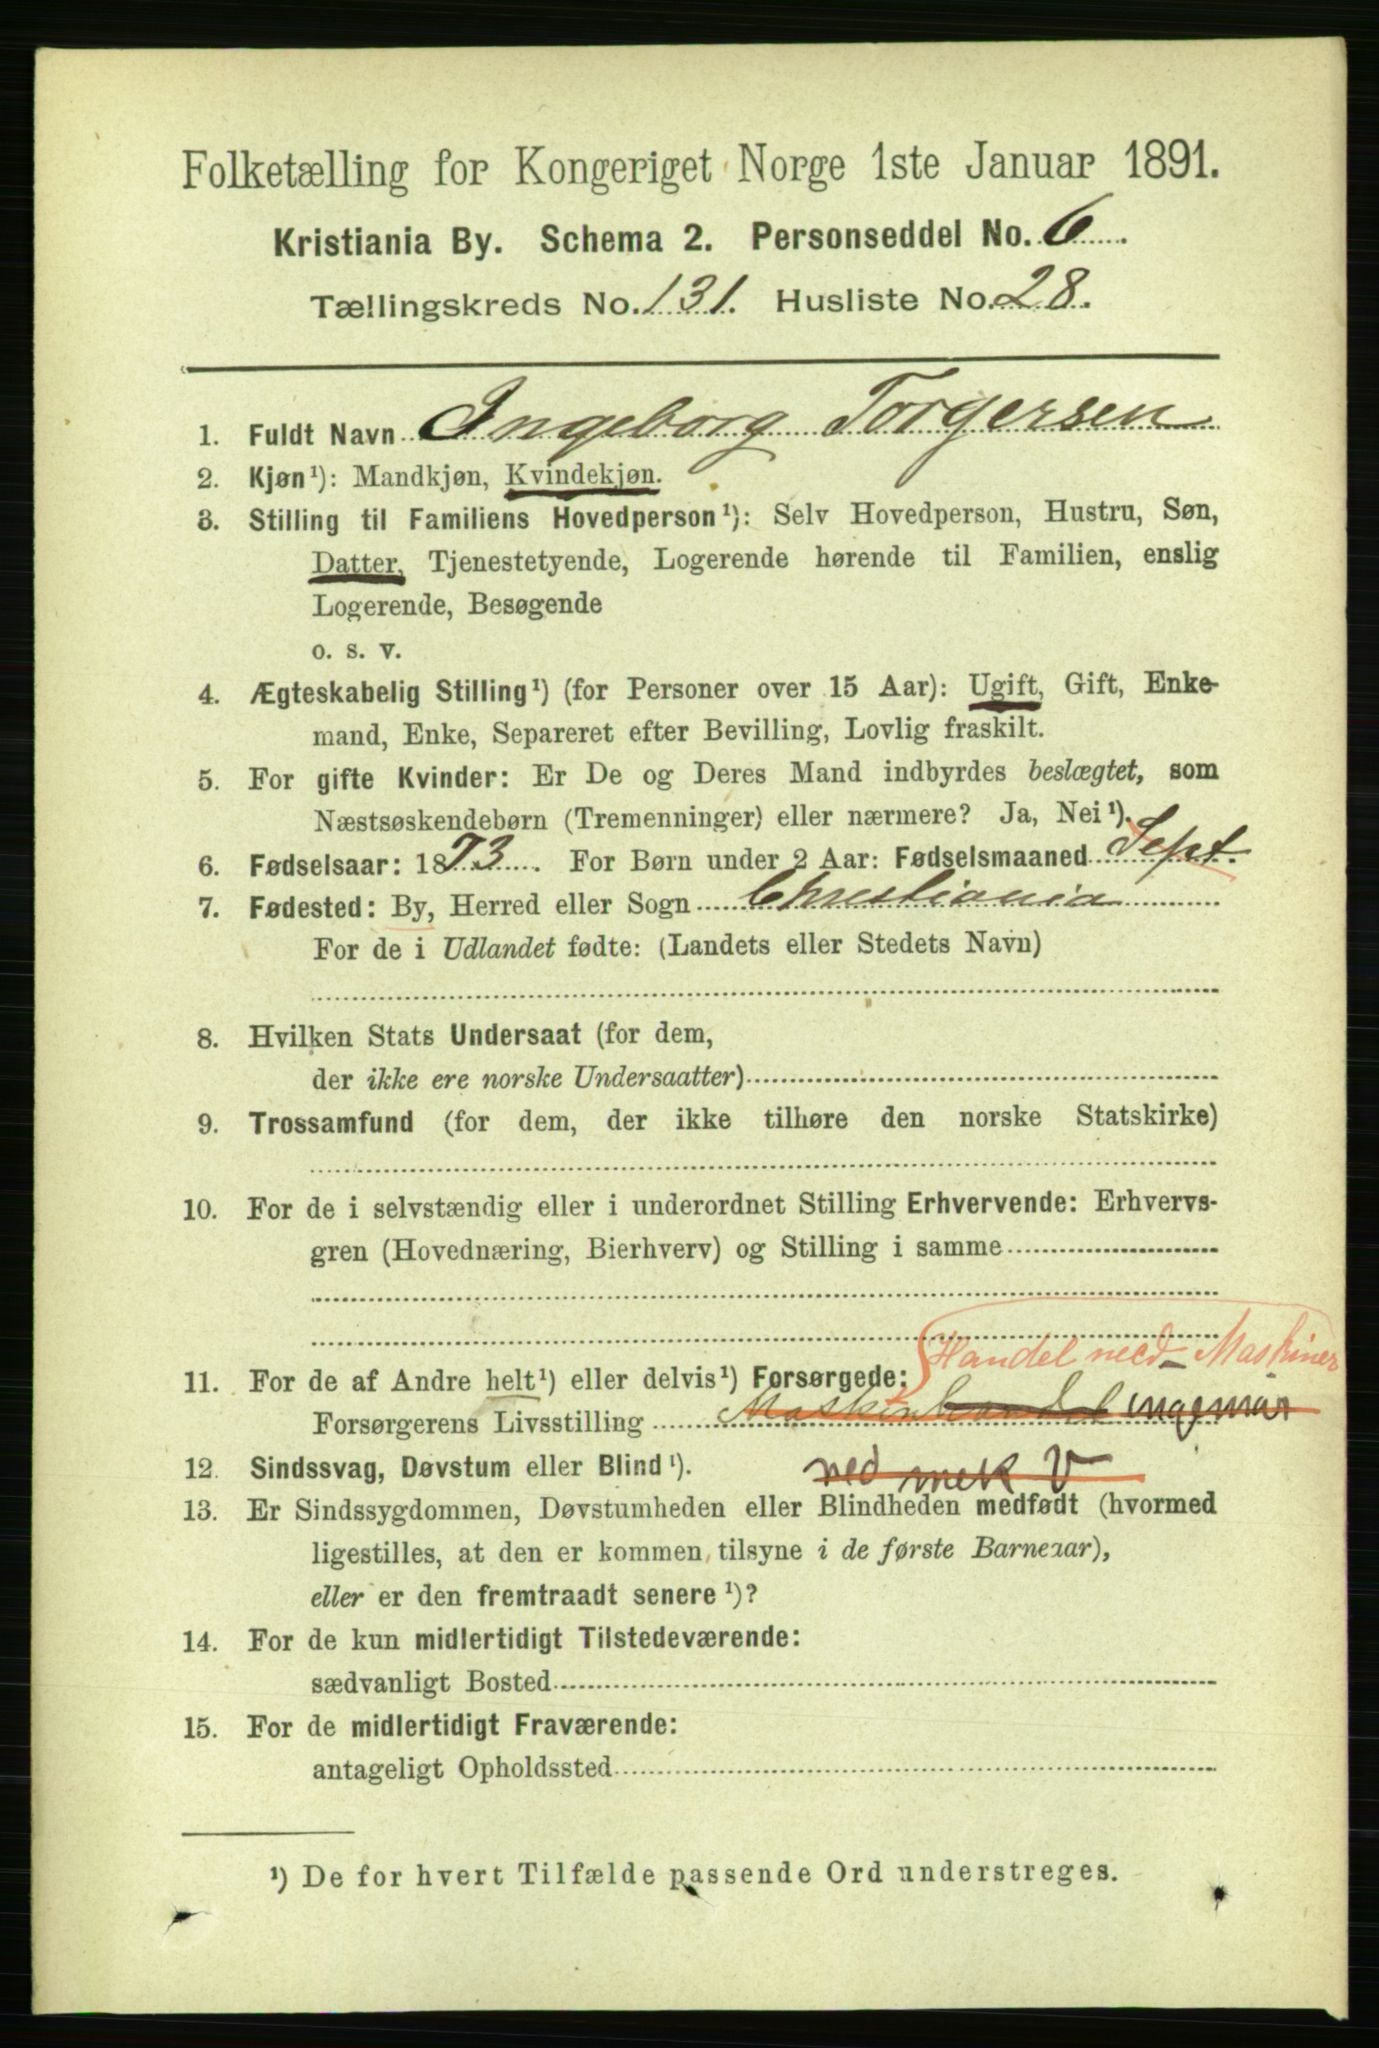 Folketælling for Kongeriget Norge 1ste Januar 1891.
Kristiania By. Schema 2. Personseddel No. 6
Tællingskreds No. 131. Husliste No. 28.
1. Fuldt Navn Ingeborg Torgersen
2. Kjøn¹): Mandkjøn, Kvindekjøn.
3. Stilling til Familiens Hovedperson¹): Selv Hovedperson, Hustru, Søn,
Datter, Tjenestetyende, Logerende hørende til Familien, enslig
Logerende, Besøgende
o. s. v.
4. Ægteskabelig Stilling¹) (for Personer over 15 Aar): Ugift, Gift, Enke-
mand, Enke, Separeret efter Bevilling, Lovlig fraskilt.
5. For gifte Kvinder: Er De og Deres Mand indbyrdes beslægtet, som
Næstsøskendebørn (Tremenninger) eller nærmere? Ja, Nei¹).
6. Fødselsaar: 1873. For Børn under 2 Aar: Fødselsmaaned Sept.
7. Fødested: By, Herred eller Sogn Christiania
For de i Udlandet fødte: (Landets eller Stedets Navn)
8. Hvilken Stats Undersaat (for dem,
der ikke ere norske Undersaatter)
9. Trossamfund (for dem, der ikke tilhøre den norske Statskirke)
10. For de i selvstændig eller i underordnet Stilling Erhvervende: Erhvervs-
gren (Hovednæring, Bierhverv) og Stilling i samme
Handel med Maskiner
11. For de af Andre helt¹) eller delvis¹) Forsørgede:
Forsørgerens Livsstilling Maskinhandel ingeniør
12. Sindssvag, Døvstum eller Blind¹). ved mek V
13. Er Sindssygdommen, Døvstumheden eller Blindheden medfødt (hvormed
ligestilles, at den er kommen tilsyne i de første Barneaar),
eller er den fremtraadt senere¹)?
14. For de kun midlertidigt Tilstedeværende:
sædvanligt Bosted
15. For de midlertidigt Fraværende:
antageligt Opholdssted
¹) De for hvert Tilfælde passende Ord understreges.